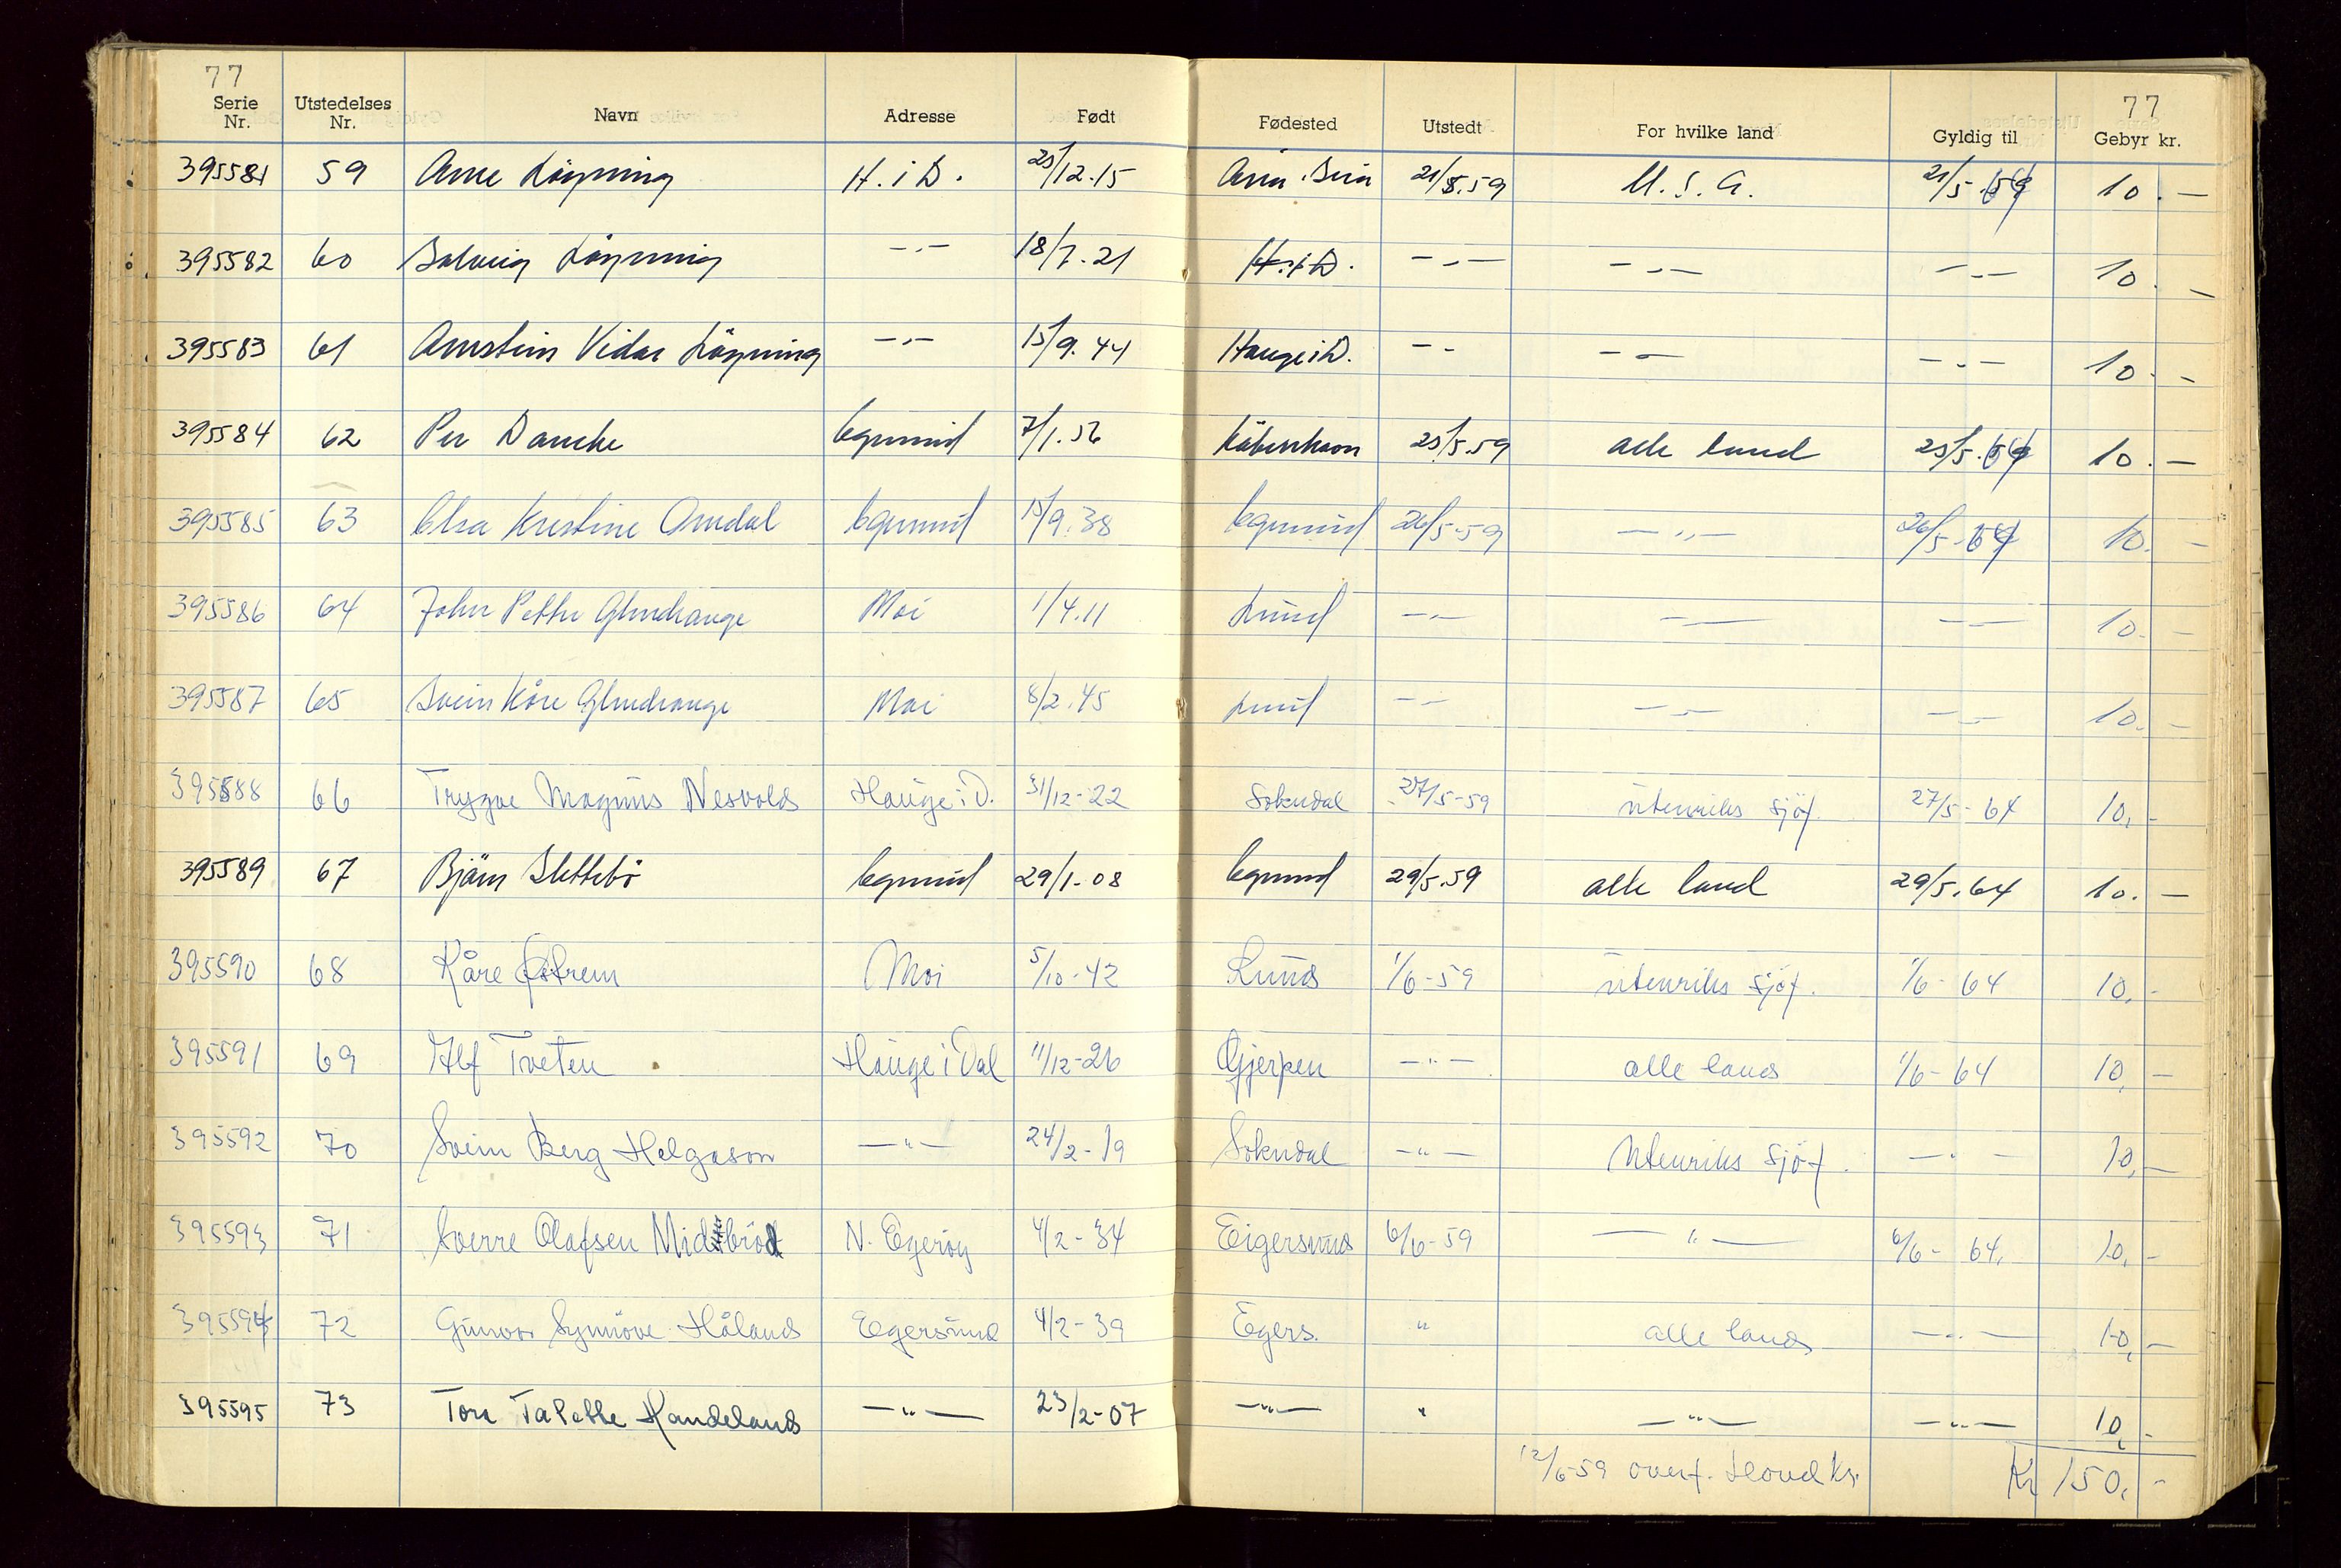 77 77
Serie Nr. Utstedelses Nr. Navn Adresse Født Fødested Utstedt For hvilke land Gyldig til Gebyr kr.
395581 59 Arne Løgning H. i D. 25/12.15 21/5.59 U.S.A. 21/5. 64 10.—
395582 60 Solveig Løgning —"— 18/7.21 H. i D. —"— —"— —"— 10.—
395583 61 Arnstein Vidar Løgning —"— 15/9.44 Hauge i D. —"— —"— —"— 10.—
395584 62 Per Danche Egersund 7/1.56 København 25/5.59 alle land 25/5.64 10.—
395585 63 Elsa Kristine Omdal Egersund 15/9.38 Egersund 26/5.59 —"— 26/5.64 10.—
395586 64 John Petter Glendrange Moi 1/4.11 Lund —"— —"— —"— 10.—
395587 65 Svein Kåre Glendrange Moi 8/2.45 Lund —"— —"— —"— 10.—
395588 66 Trygve Magnus Nesvold Hauge i D. 31/12-22 Sokndal 27/5-59 utenriks sjöf. 27/5-64 10,-
395589 67 Bjørn Slettebö Egersund 29/1-08 Egersund 29/5.59 alle land 29/5.64 10.—
395590 68 Kåre Østrem Moi 5/10-42 Lund 1/6-59 utenriks sjöf. 1/6-64 10,-
395591 69 Alf Tveten Hauge i Dal 11/12-26 Gjerpen —"— alle land 1/6-64 10,—
395592 70 Svein Berg Helgason —"— 24/2-19 Sokndal —"— Utenriks sjöf. —"— 10,—
395593 71 Sverre Olafsen Midbröd N. Egeröy 4/2-34 Eigersund 6/6-59 —"— 6/6-64. 10,-
395594 72 Gunvor Synnöve Håland Egersund 4/2-39 Egers. " alle land —"— 10,—
395595 73 Tora Handeland —"— 23/2-07 —"— " —"— —"— 10,-
12/6-59 overf. Hovedks. Kr 150,-